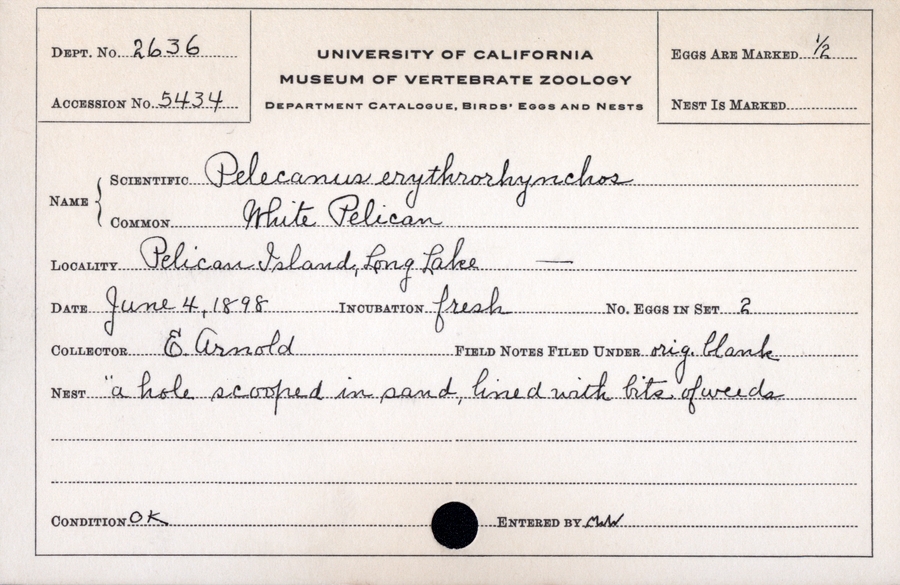 DEPT. NO. 2636
UNIVERSITY OF CALIFORNIA
MUSEUM OF VERTEBRATE ZOOLOGY
DEPARTMENT CATALOGUE, BIRDS' EGGS AND NESTS
EGGS ARE MARKED 1/2
ACCESSION NO. 5434
NEST IS MARKED
NAME { SCIENTIFIC Pelecanus erythrorhynchos
COMMON White Pelican
LOCALITY Pelican Island, Long Lake —
DATE June 4, 1898 INCUBATION fresh NO. EGGS IN SET 2
COLLECTOR E. Arnold FIELD NOTES FILED UNDER orig. blank
NEST "a hole scooped in sand, lined with bits of weeds
CONDITION OK ENTERED BY